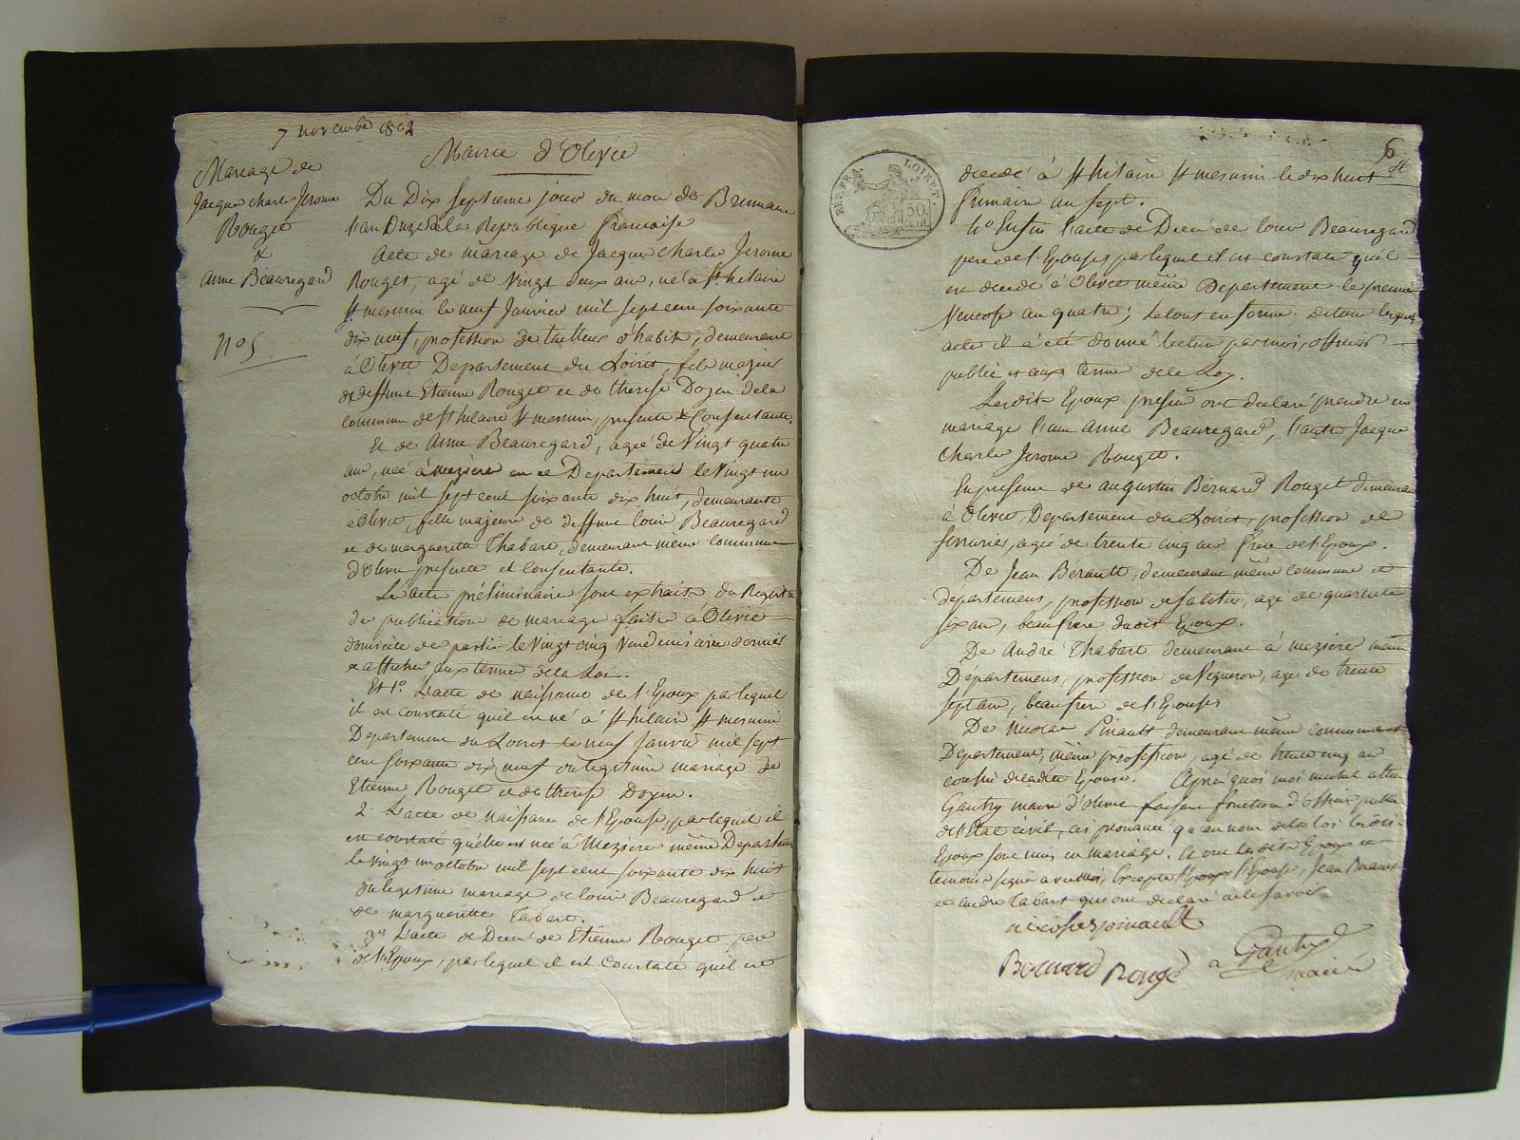 7 novembre 1802
Mairie d'Olivet
Mariage de
Jacque charle Jerome
Rouget
&
Anne Beauregard
n° 5
Du Dix septieme jour du mois de Brumaire
l'an Onze de la Republique francaise
Acte de mariage de Jacque Charle Jerome
Rouget, agé de vingt deux ans, né à St hilaire
St mesmin le neuf Janvier mil sept cent soixante
dix neuf, profession de tailleur d'habits, demeurant
à Olivet Departement du Loiret, fils majeur
de deffunt Etienne Rouget et de therese Doyen de la
commune de St hilaire St mesmin, presente & Consentante.
Et de Anne Beauregard, agée de Vingt quatre
ans, née à mezière en ce Departement le Vingt un
octobre mil sept cent soixante dix huit, demeurante
à Olivet, fille majeure de deffunt louis Beauregard
et de marguerite Thabart, demeurant même commune
d'Olivet presente et consentante.
Les actes préliminaire sont extraits du Registre
de publication de mariage faite à Olivet
domicile de partie le Vingt cinq Vendemiaire dernier
& affiché aux terme de la Loi.
Et 1° L'acte de naissance de l'Epoux par lequel
il est constaté qu'il est né à St hilaire St mesmin
Departement du Loiret le neuf Janvier mil sept
cent soixante dix neuf du legitime mariage de
Etienne Rouget et de therese Doyen.
2 L'acte de naissance de l'Epouse, par lequel il
est constaté qu'elle est née à Mezière même Departement
le vingt un octobre mil sept cent soixante dix huit
du legitime mariage de louis Beauregard et
de marguerite tabart.
3° L'acte de Décè de Etienne Rouget pere
de l'Epoux, par lequel il est Constaté qu'il est
REP. FRA. LOIRET.
50
6
decedé à St hilaire St mesmin le dix huit
frimaire an sept.
4° Enfin l'acte de Décè de louis Beauregard
pere de l'Epouse par lequel il est constaté qu'il
est decedé à Olivet même Departement le premier
Ventose an quatre; le tout en forme. de tous lesquels
actes il a été donné lecture par moi, officier
public et aux terme de la Loy.
Lesdits Epoux present ont declaré prendre en
mariage l'un Anne Beauregard, l'autre Jacque
Charle Jerome Rouget.
En presence de augustin Bernard Rouget demeurant
à Olivet, Departement du Loiret, profession de
serrurier, agé de trente cinq ans frere de l'Epoux.
De Jean Berault, demeurant même commune et
departement, profession de sabotier, agé de quarante
six ans, beau frere dudit Epoux.
De André Thabart demeurant à mezière même
Département, profession de Vigneron, agé de trente
sept ans, beau frere de l'Epouse
De Nicolas Pinault demeurant même commune et
Département, même profession, agé de trente cinq ans
cousin de ladite Epouse. Après quoi moi michel
Gautry maire d'olivet faisant fonction d'officier public
de l'Etat civil, ai prononcé qu'au nom de la loi lesdits
Epoux sont unis en mariage. Et ont lesdits Epoux et
temoins signé avec moi, Excepté l'Epouse, Jean Berault
et andré tabart qui ont declaré ne le savoir
nicolas pinault
Bernard Rougé
Gautry
maire